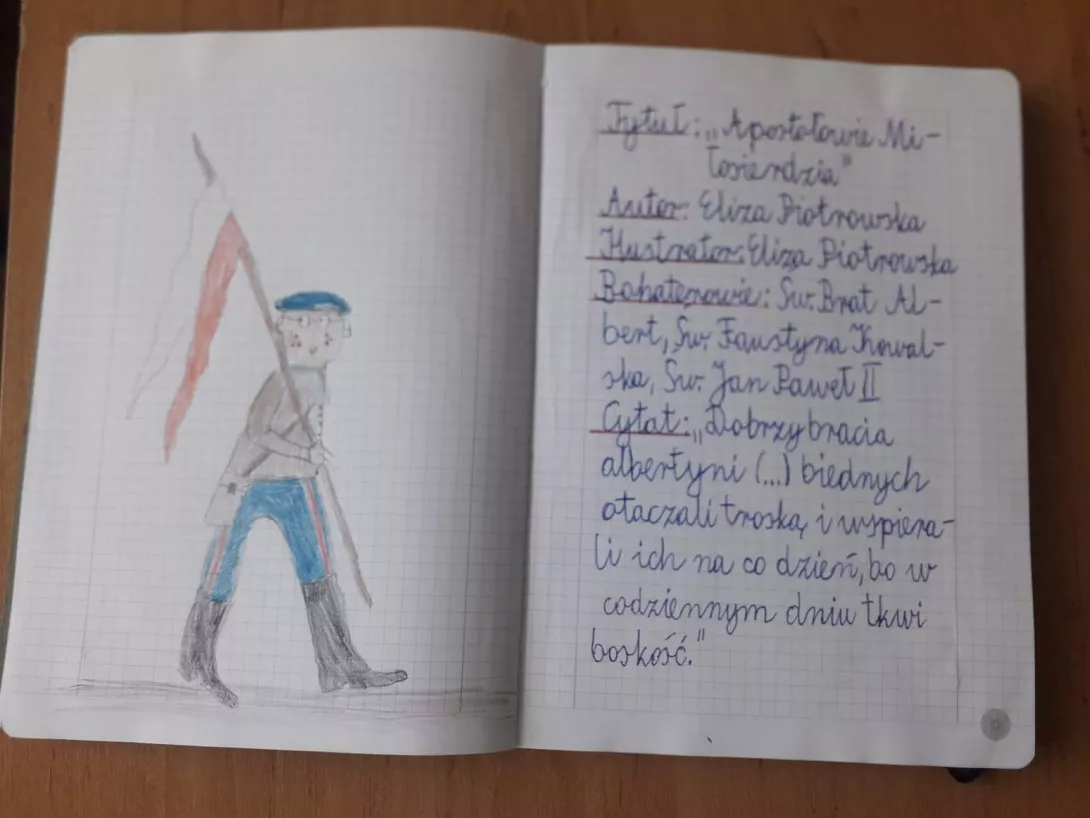 Tytuł: „Apostołowie Mi-
łosierdzia"
Autor: Eliza Piotrowska
Ilustrator: Eliza Piotrowska
Bohaterowie: Św. Brat Al-
bert, Św. Faustyna Kowal-
ska, Św. Jan Paweł II
Cytat: „Dobrzy bracia
albertyni (...) biednych
otaczali troską i wspiera-
li ich na co dzień, bo w
codziennym dniu tkwi
boskość."